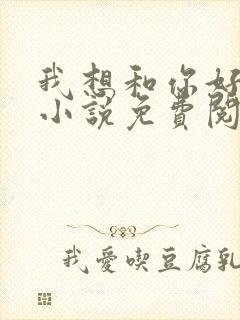 我想和你好
小說免費閱
我愛喫豆腐乳